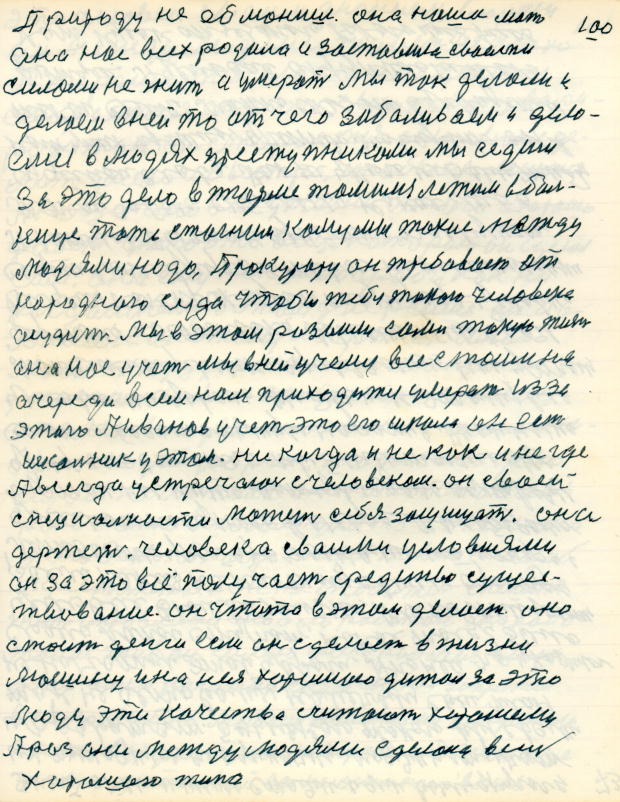 Природу не обманиш. она наша мат
100
она нас всех родила и заставила своими
силами не жит а умерат мы так делали и
делаем в ней то от чего забаливаем и дела-
ем в людях преступниками мы седим
За это дело в тюрме томимся лежим в бол-
нице тоже стогним кому мы такие между
людями надо, Прокурору он требовает от
народного суда чтобы тебя такого человека
асудит. Мы в этом развили сами такую жизн
она нас учит мы в ней учемся все стоим на
очереди всем нам приходится умерат из за
этого Аиванов учет это его школа он ест
школник у этом. ни когда и не как и не где
Авсегда устречался с человеком. он своей
специалности может себя защищат. она
держет. человека своими условиями
он за это всё получает средство сущес-
твование. он чтото в этом делает. оно
стоит денги если он сделает в жизни
Машину и на неё хорошого дитол за это
люди эти качества считают хорошеми
Араз они между людями сделана вещ
хорошого типа